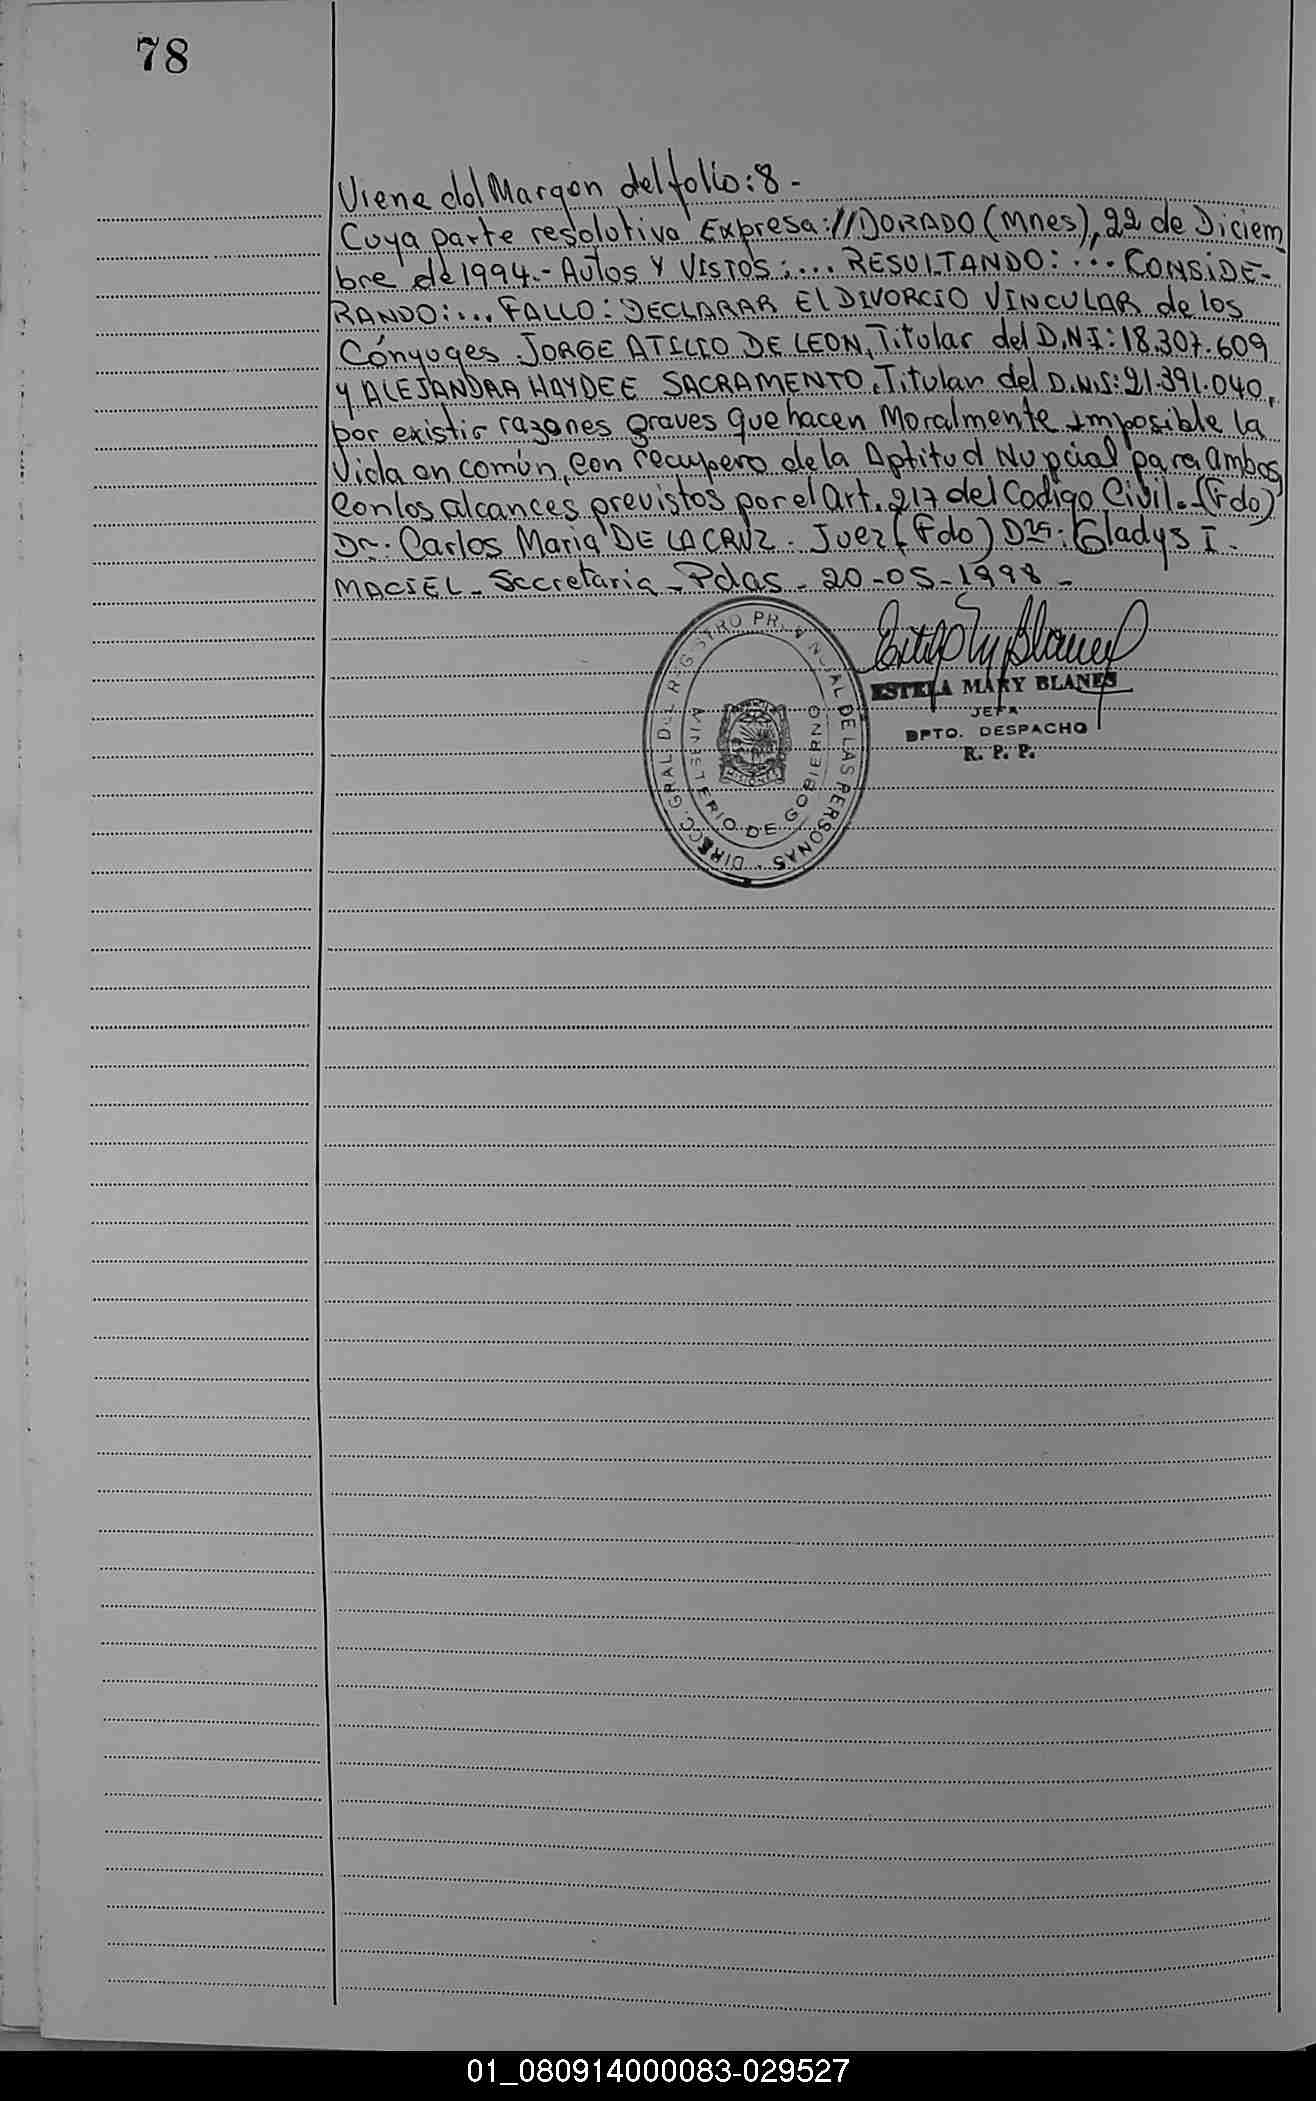 78
Viene del Margen del folio: 8 -
Cuya parte resolutiva Expresa: // DORADO (Mnes), 22 de Diciem
bre de 1994.- Autos Y VISTOS:... RESULTANDO:... CONSIDE-
RANDO:... FALLO: DECLARAR El DIVORCIO VINCULAR de los
Cónyuges JORGE ATILIO DE LEON, Titular del D.N.I: 18.307.609
y ALEJANDRA HAYDEE SACRAMENTO, Titular del D.N.I: 21.391.040,
por existir razones graves que hacen Moralmente imposible la
Vida en común, con recupero de la Aptitud Nupcial para ambos
Con los alcances previstos por el Art. 217 del Codigo Civil.-(Fdo)
Dr. Carlos Maria DE LA CRUZ. Juez (Fdo) Dra: Gladys I.
MACIEL - Secretaria - Pdas - 20-05-1998 -
ESTELA MARY BLANES
JEFA
DPTO. DESPACHO
R. P. P.
DIRECC. GRAL. DEL REGISTRO PROVINCIAL DE LAS PERSONAS
MINISTERIO DE GOBIERNO
01_080914000083-029527